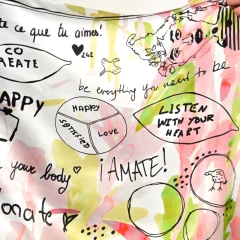 te ce que tu aimes!
CO
REATE
242
be everything you want to be
HAPPY
HAPPY
SATISFIED
LOVE
LISTEN
WITH YOUR
HEART
¡AMATE!
your body
onate